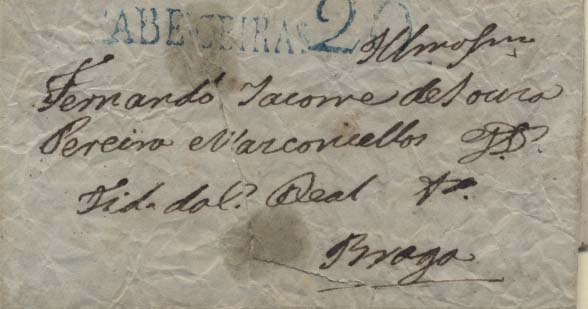 CABECEIRAS 20
Illmo Snr
Fernando Jacome de Souza
Pereira e Vasconcellos
Fid. da Cl.ª Real &ª
Braga